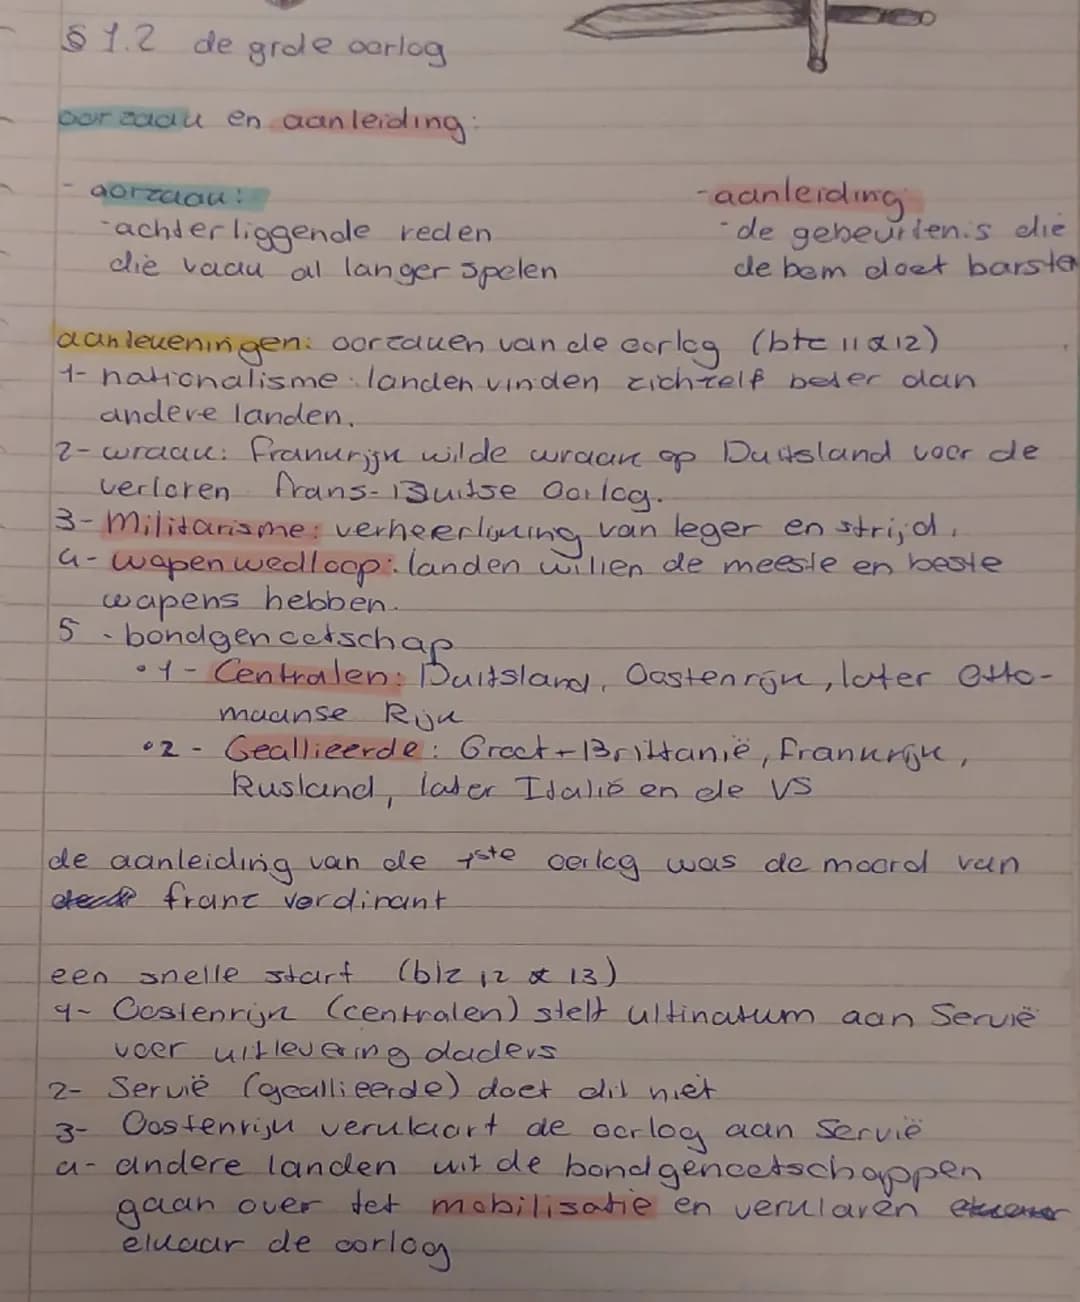 § 1.2 de grote oorlog
oorzaak en aanleiding:
- oorzaak:
- aanleiding:
- achterliggende reden
- de gebeurtenis die
die vaak al langer spelen
de bom doet barsten
aantekeningen: oorzaken van de oorlog (blz 11 & 12)
1- nationalisme: landen vinden zichzelf beter dan
andere landen.
2- wraak: Frankrijk wilde wraak op Duitsland voor de
verloren Frans-Duitse Oorlog.
3- Militarisme: verheerlijking van leger en strijd.
4- wapenwedloop: landen willen de meeste en beste
wapens hebben.
5 - bondgenootschap
• 1 - Centralen: Duitsland, Oostenrijk, later Otto-
maanse Rijk
• 2 - Geallieerde: Groot-Brittanië, Frankrijk,
Rusland, later Italië en de VS
de aanleiding van de 1ste oorlog was de moord van
franz verdinant
een snelle start (blz 12 & 13)
1- Oostenrijk (centralen) stelt ultinatum aan Servië
voor uitlevering daders
2- Servië (geallieerde) doet dit niet
3- Oostenrijk verklaart de oorlog aan Servië
4- andere landen uit de bondgenootschappen
gaan over tot mobilisatie en verklaren
elkaar de oorlog